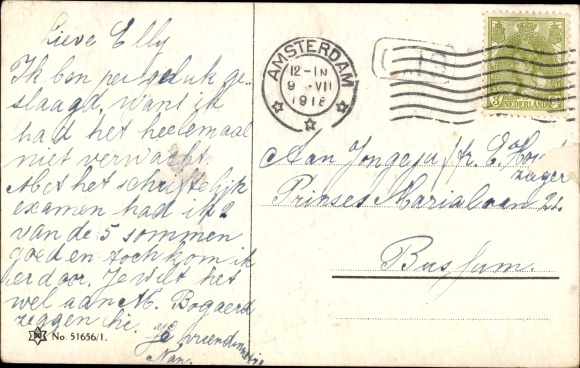 Lieve Elly
Ik ben per geluk ge-
slaagd, want ik
had het heelemaal
niet verwacht.
Met het schriftelijk
examen had ik 2
van de 5 sommen
goed en toch kom ik
er door. Je wilt het
wel aan M. Bogaerd
zeggen hè. je vriendinnetje
Nan.
No. 51656/1.
AMSTERDAM
12-1N
9 VII
1918
3 NEDERLAND
Aan Jongeju/fr. E.
zager
Prinses Marialaan 21.
Bussum.